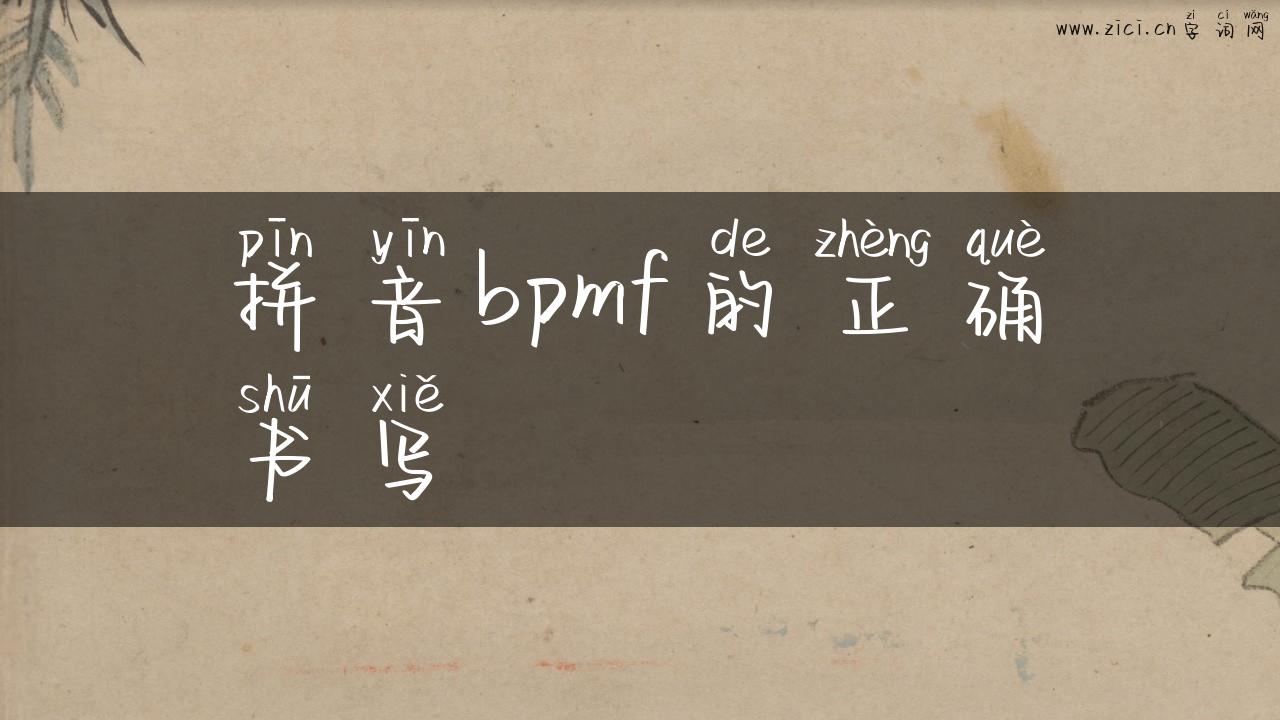 zì cí wǎng
www.zici.cn 字词网
pīn yīn de zhèng què
拼音bpmf的正确
shū xiě
书写